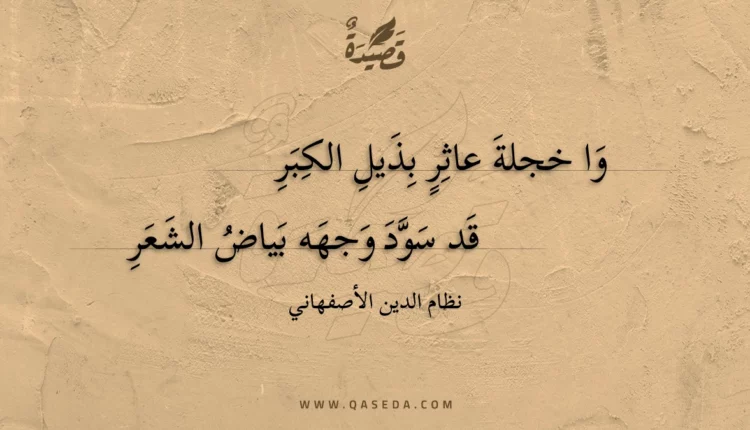 قَصِيدَةٌ
وَا خجلةَ عاثِرٍ بِذَيلِ الكِبَرِ
قَد سَوَّدَ وَجهَه بَياضُ الشَعَرِ
نظام الدين الأصفهاني
WWW.QASEDA.COM